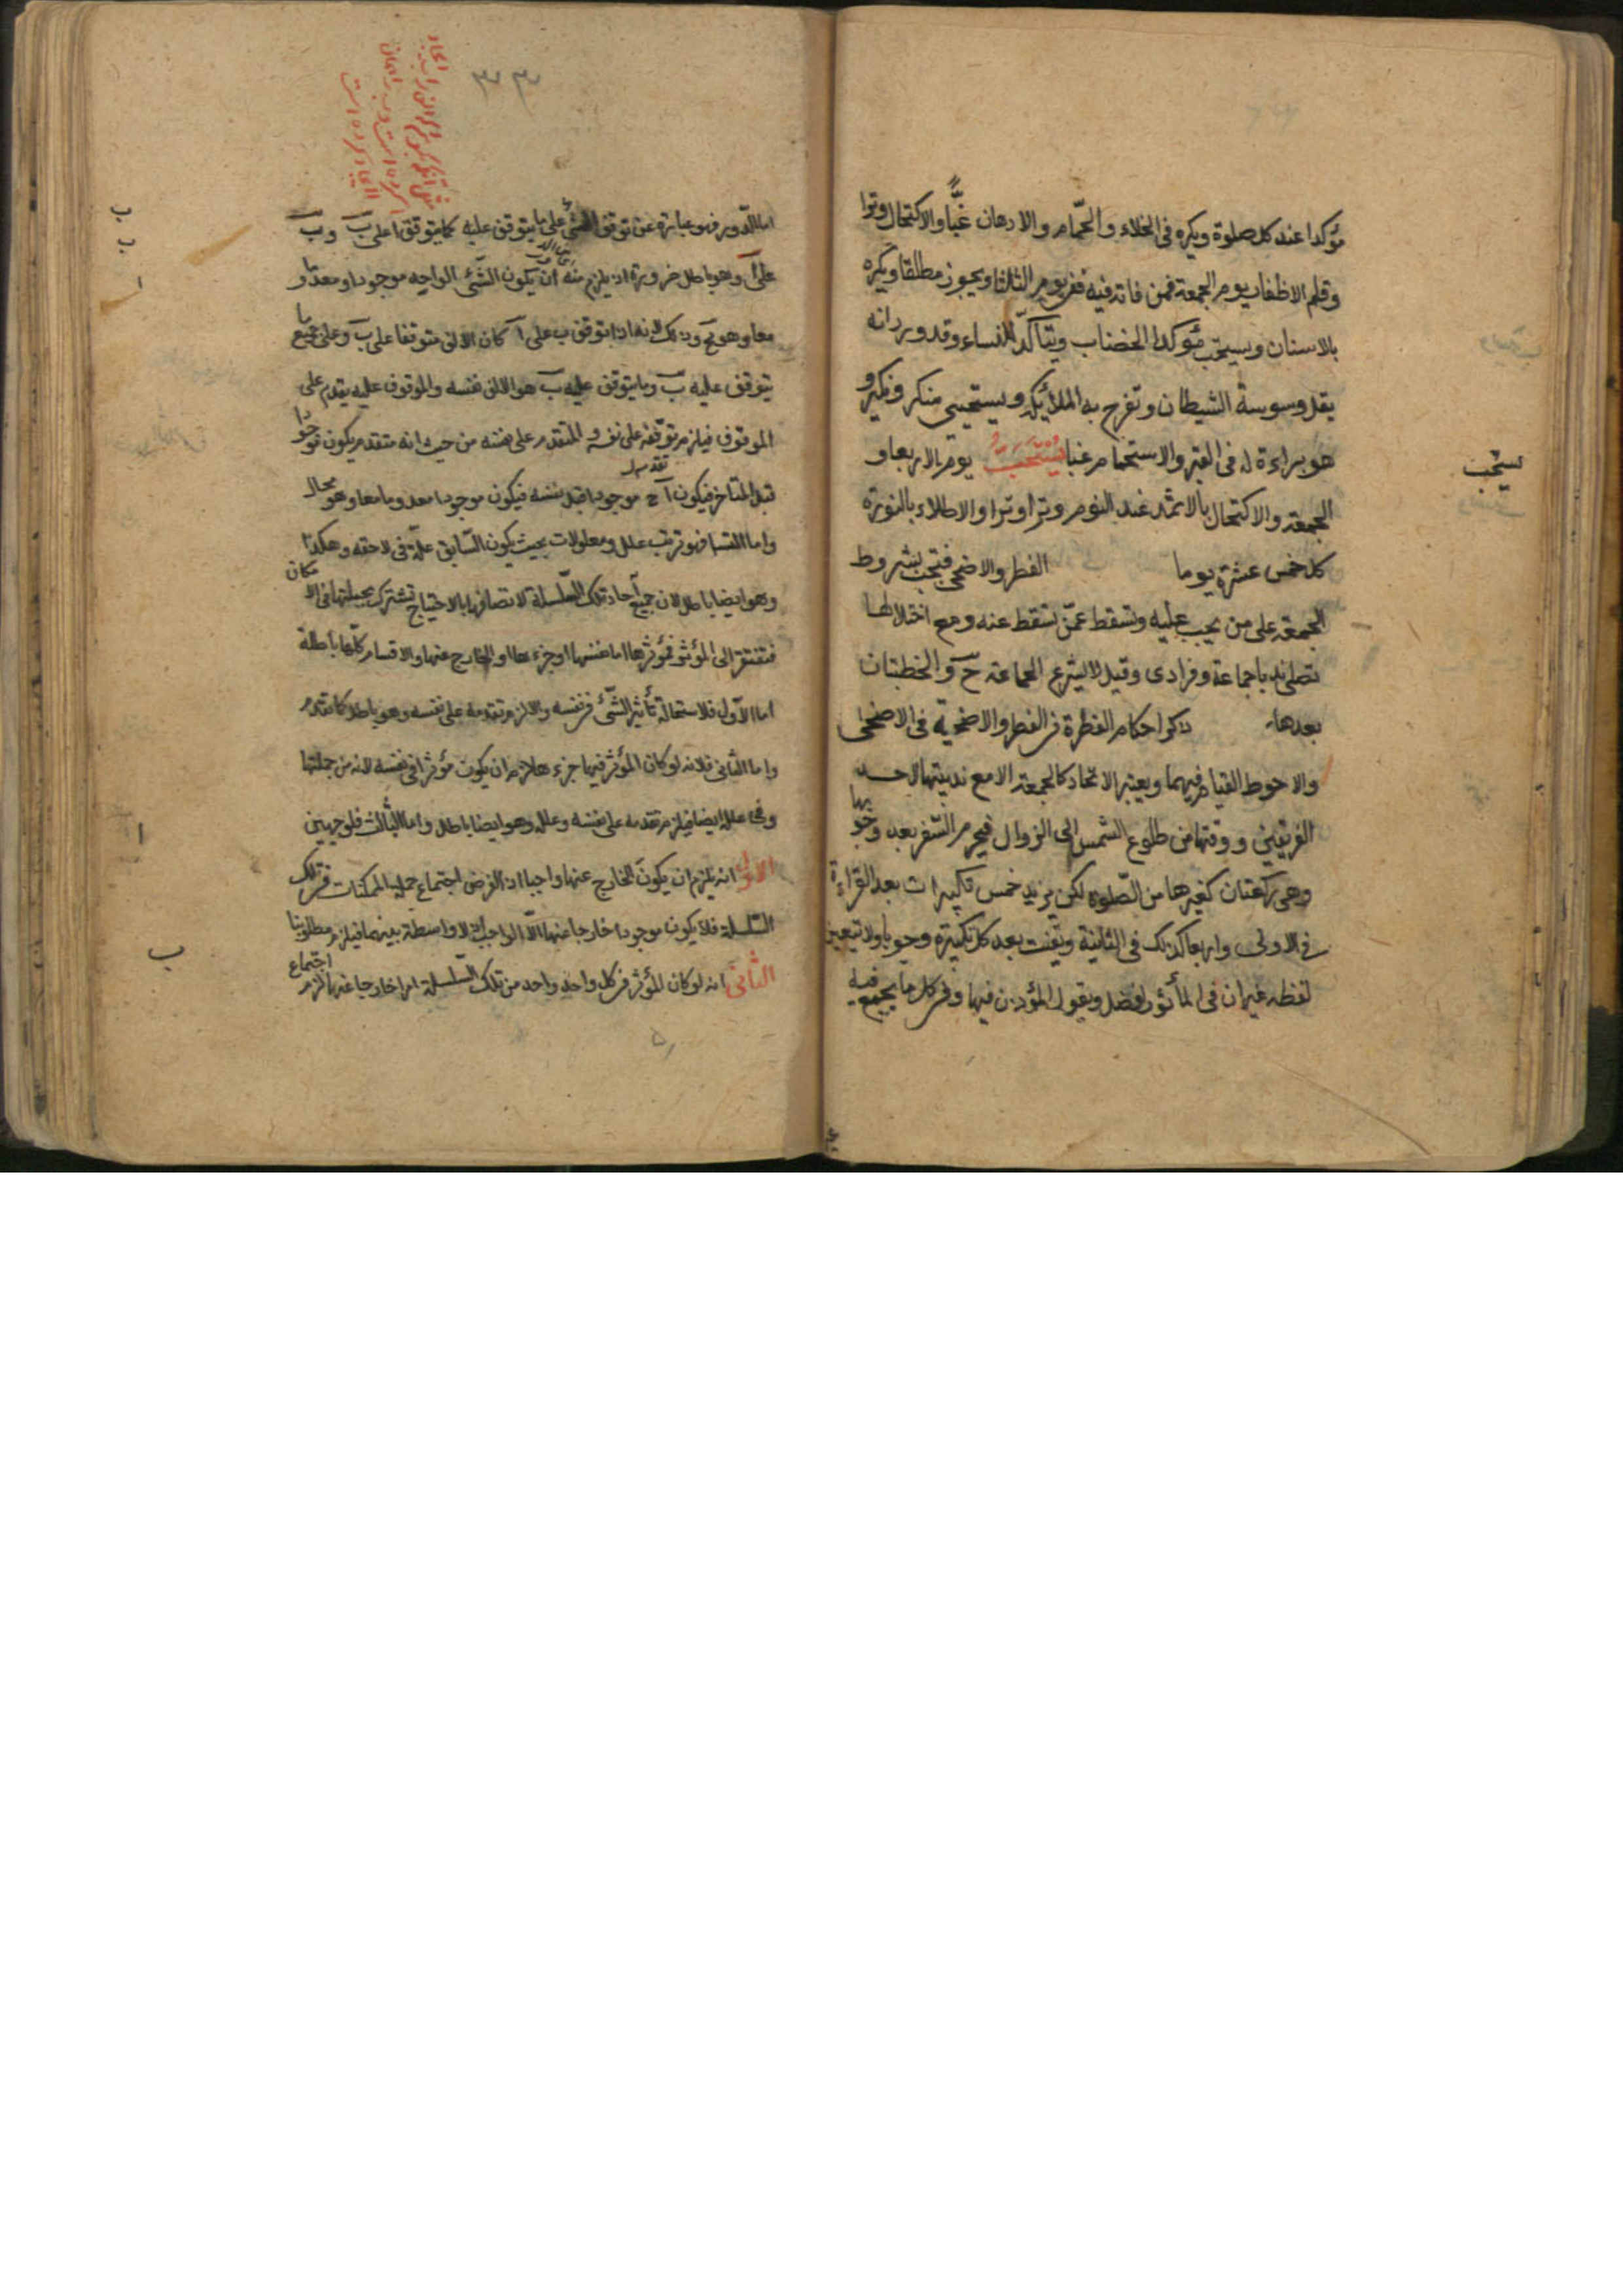 مؤكدا عند كل صلوة ويكره فى الخلاء والحمّام والادهان غبًّا والاكتحال وترا
وقلم الاظفار يوم الجمعة فمن فاته فيه ففى يوم الثلثا ويجوز مطلقا ويكره
بالاسنان ويستحب مؤكدا الخضاب ويتأكّد للنساء وقد ورد انه
يقل وسوسة الشيطان وتفرح به الملائكة ويستحيى منكر ونكير و
هو براءة له فى القبر والاستحمام غبا يُسْتَحَبُّ يوم الاربعا و
الجمعة والاكتحال بالاثمد عند النوم وترا وترا والاطلاء بالنورة
كل خمس عشرة يوما الفطر والاضحى فتجب بشروط
الجمعة على من يجب عليه وتسقط عمّن تسقط عنه ومع اختلالها
تصلى ندبا جماعة وفرادى وقيل لا يشرع الجماعة ح والخطبتان
بعدها ذكر احكام الفطرة فى الفطر والاضحية فى الاضحى
والاحوط القيام فيهما ويعتبر الاتحاد كالجمعة الا مع ندبيتها لاحد
الفريقين ووقتها من طلوع الشمس الى الزوال فيحرم السّفر بعده وجوبها
وهى ركعتان كغيرها من الصّلوة لكن يزيد خمس تكبيرات بعد القراءة
فى الاولى واربعا كذلك فى الثانية ويقنت بعد كل تكبيرة وجوبا ولا تيعين
لفظه غير ان فى المأثور افضل ويقول المؤذن فيها وفى كل ما يجمع فيه
يستحب
٣٣
اما الدّور فهو عبارة عن توقف الشئ على ما يتوقف عليه كما يتوقف ا على ب وب
على آ وهو باطل ضرورة اذ يلزم منه ان يكون الشّئ الواحد موجودا ومعدوما
معا وهو مح وذلك لانه اذا توقف ب على آ كان الالف متوقفا على ب وعلى جميع ما
يتوقف عليه ب وما يتوقف عليه ب هو الالف نفسه والموقوف عليه يقدم على
الموقوف فيلزم توقفه على نفسه والمتقدم على نفسه من حيث انه متقدم يكون موجودا
قبل المتاخر فيكون آ ح موجودا قبل نفسه فيكون موجودا معدوما معا وهو محال
واما التسلسل فهو ترتب علل ومعلولات بحيث يكون السّابق علّة فى لاحقه وهكذا
وهو ايضا باطل لان جميع آحاد تلك السّلسلة لاتصافها بالاحتياج تشترك بجملتها فى الامكان
فتفتقر الى المؤثر فمؤثرها اما نفسها او جزءها او الخارج عنها والاقسام كلّها باطلة
اما الاوّل فلاستحالة تأثير الشّئ فى نفسه والا لزم تقدمه على نفسه وهو باطل كما تقدم
واما الثانى فلانه لو كان المؤثر فيها جزءها لزم ان يكون مؤثرا فى نفسه لانه من جملتها
وفى علله ايضا فيلزم تقدمه على نفسه وعلله وهو ايضا باطل واما الثالث فلوجهين
الاول انه يلزم ان يكون الخارج عنها واجبا اذ الفرض اجتماع جملة الممكنات فى تلك
السّلسلة فلا يكون موجودا خارجا عنها الّا الواجب اذ لا واسطة بينهما فيلزم مطلوبنا
الثانى انه لو كان المؤثر فى كل واحد واحد من تلك السّلسلة امرا خارجا عنها لزم اجتماع